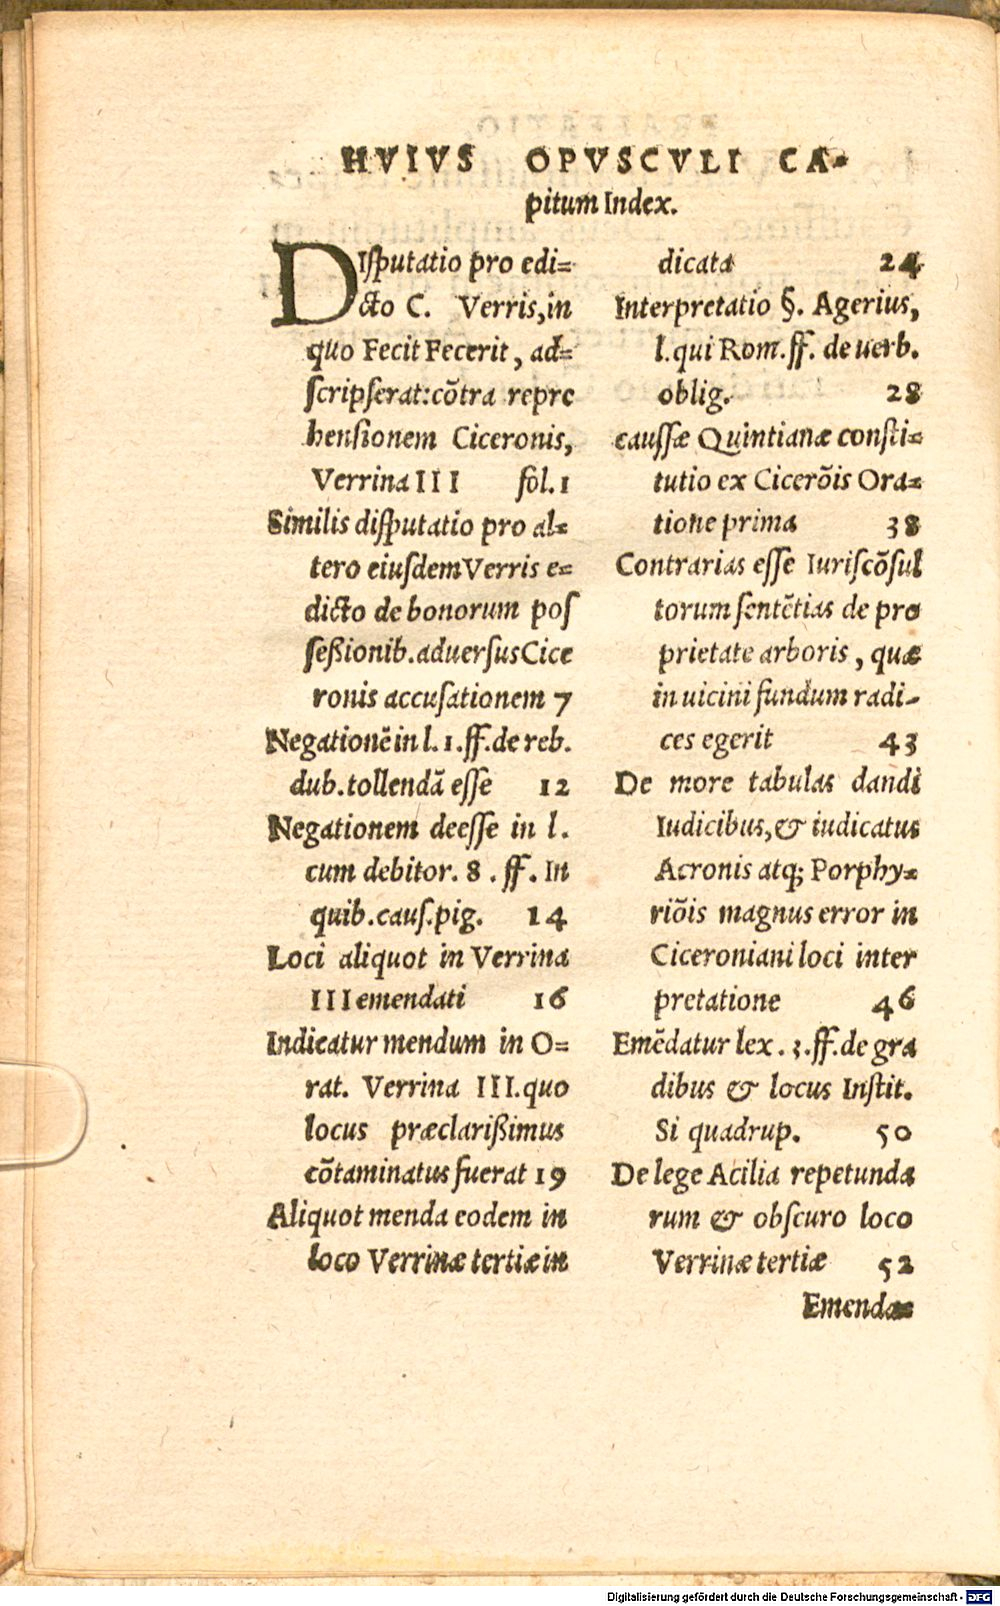 HVIVS OPVSCVLI CA-
pitum Index.
DIſputatio pro edi=
cto C. Verris,in
quo Fecit Fecerit, ad=
ſcripſerat:cõtra repre
henſionem Ciceronis,
Verrina III fol.1
Similis diſputatio pro al=
tero eiuſdem Verris e=
dicto de bonorum poſ
ſeßionib.aduerſus Cice
ronis accuſationem 7
Negationẽ in l.1.ff.de reb.
dub.tollendã eſſe 12
Negationem deeſſe in l.
cum debitor. 8. ff. In
quib.cauſ.pig. 14
Loci aliquot in Verrina
III emendati 16
Indicatur mendum in O=
rat. Verrina III.quo
locus præclarißimus
cõtaminatus fuerat 19
Aliquot menda eodem in
loco Verrinæ tertiæ in
dicata 24
Interpretatio §. Agerius,
l.qui Rom.ff. de uerb.
oblig. 28
cauſſæ Quintianæ conſti=
tutio ex Cicerõis Ora=
tione prima 38
Contrarias eſſe Iuriſcõſul
torum ſentẽtias de pro
prietate arboris, quæ
in uicini fundum radi-
ces egerit 43
De more tabulas dandi
Iudicibus,& iudicatus
Acronis atq; Porphy=
riõis magnus error in
Ciceroniani loci inter
pretatione 46
Emẽdatur lex.3.ff.de gra
dibus & locus Inſtit.
Si quadrup. 50
De lege Acilia repetunda
rum & obſcuro loco
Verrinæ tertiæ 52
Emenda=
Digitalisierung gefördert durch die Deutsche Forschungsgemeinschaft - DFG